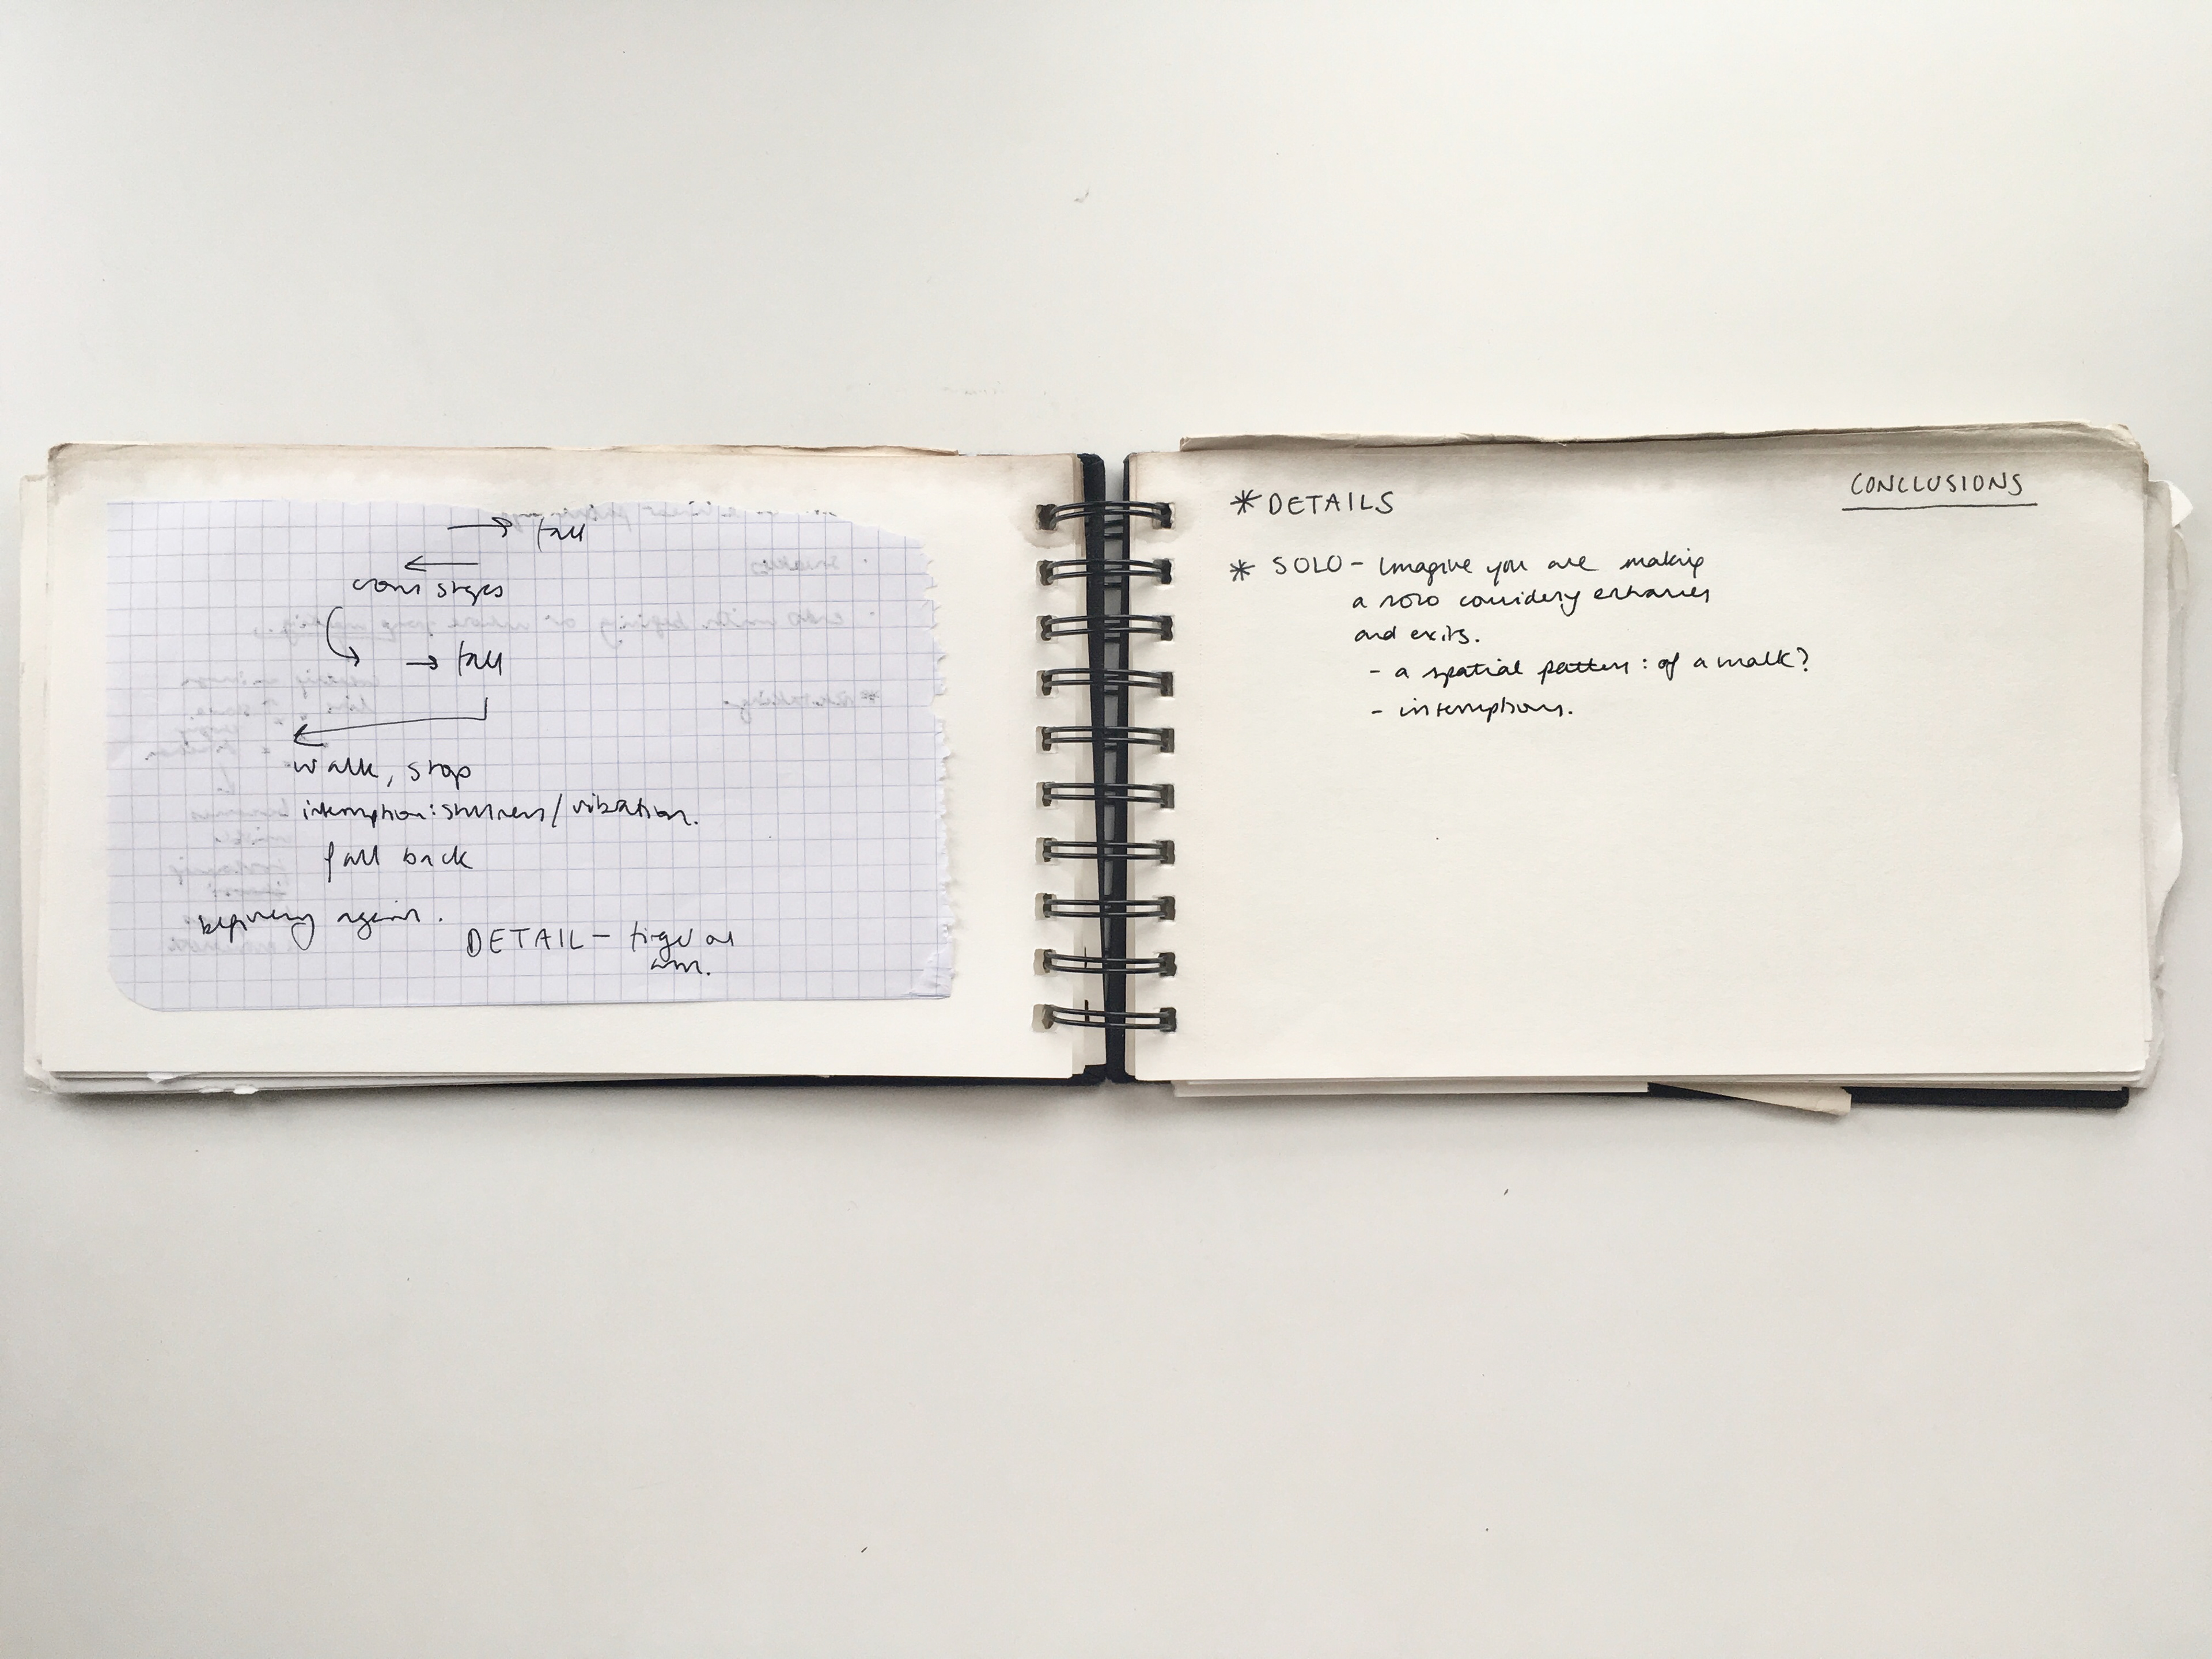 → fall
←
cross stages
→ fall
walk, stop
interruption: stillness / vibration.
fall back
beginning again.
DETAIL – finger or
arm.
CONCLUSIONS
* DETAILS
* SOLO – Imagine you are making
a solo considering entrances
and exits.
- a spatial pattern: of a walk?
- interruptions.